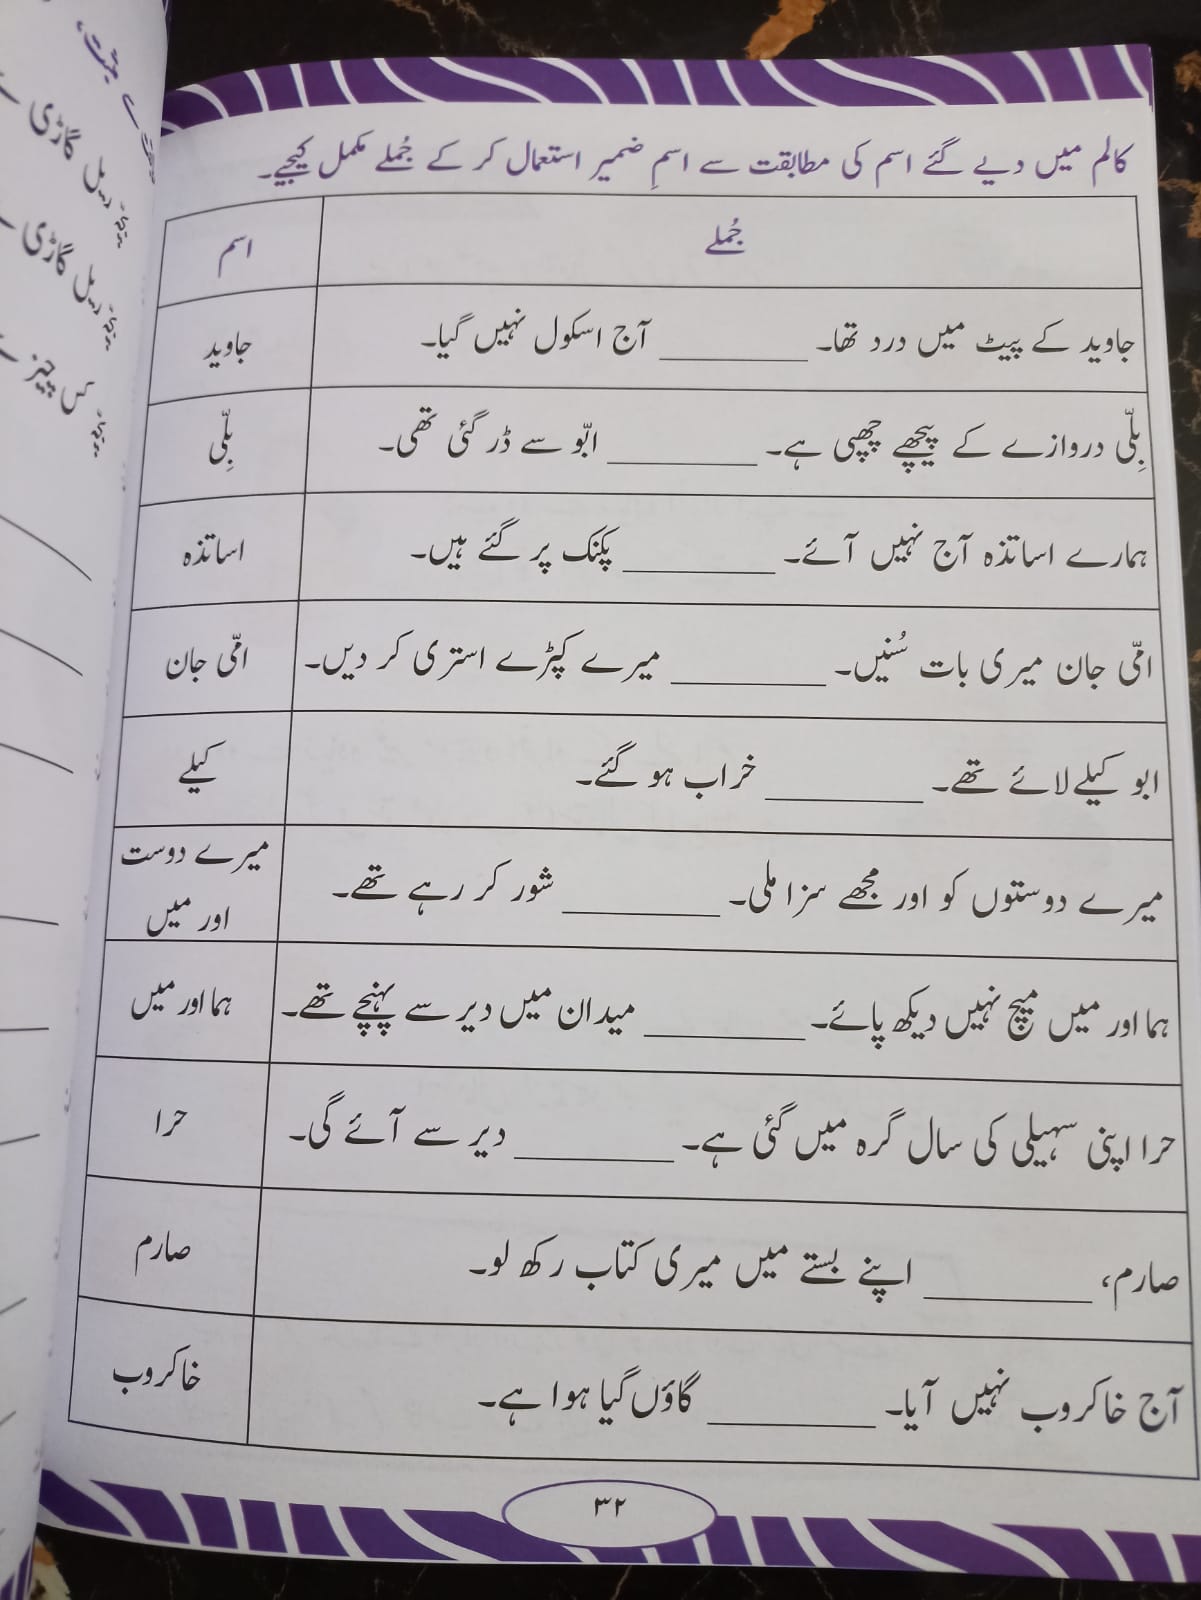 کالم میں دیے گئے اسم کی مطابقت سے اسمِ ضمیر استعمال کر کے جُملے مکمل کیجیے۔
جُملے اسم
جاوید کے پیٹ میں درد تھا۔ __________ آج اسکول نہیں گیا۔ جاوید
بِلّی دروازے کے پیچھے چھپی ہے۔ __________ ابّو سے ڈر گئی تھی۔ بِلّی
ہمارے اساتذہ آج نہیں آئے۔ __________ پکنک پر گئے ہیں۔ اساتذہ
امّی جان میری بات سُنیں۔ __________ میرے کپڑے استری کر دیں۔ امّی جان
ابو کیلے لائے تھے۔ __________ خراب ہو گئے۔ کیلے
میرے دوستوں کو اور مجھے سزا ملی۔ __________ شور کر رہے تھے۔ میرے دوست
اور میں
ہما اور میں میچ نہیں دیکھ پائے۔ __________ میدان میں دیر سے پہنچے تھے۔ ہما اور میں
حرا اپنی سہیلی کی سال گرہ میں گئی ہے۔ __________ دیر سے آئے گی۔ حرا
صارم، __________ اپنے بستے میں میری کتاب رکھ لو۔ صارم
آج خاکروب نہیں آیا۔ __________ گاؤں گیا ہوا ہے۔ خاکروب
۳۲
ریل گاڑی
ریل گاڑی
کس چیز